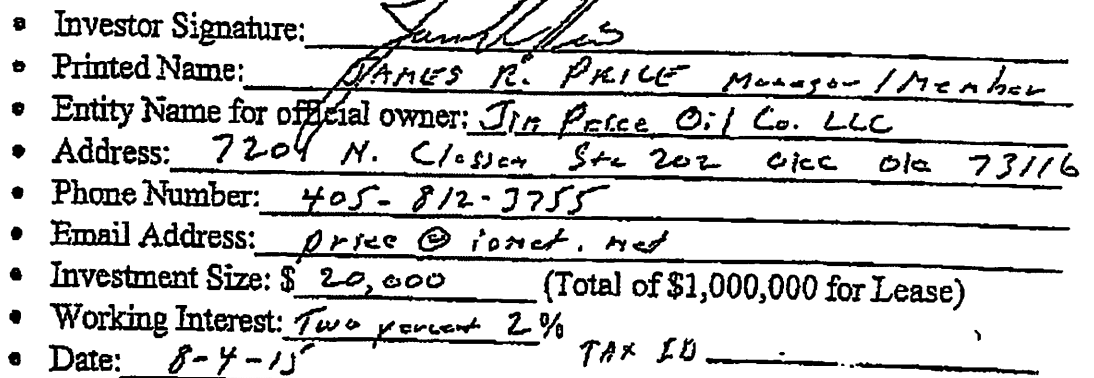 • Investor Signature:
• Printed Name: JAMES R. PRICE Manager / Member
• Entity Name for official owner: Jim Price Oil Co. LLC
• Address: 7204 N. Classen Ste 202 OKC Ok 73116
• Phone Number: 405-812-3755
• Email Address: price @ ionet. net
• Investment Size: $ 20,000 (Total of $1,000,000 for Lease)
• Working Interest: Two percent 2%
• Date: 8-4-15 TAX ID